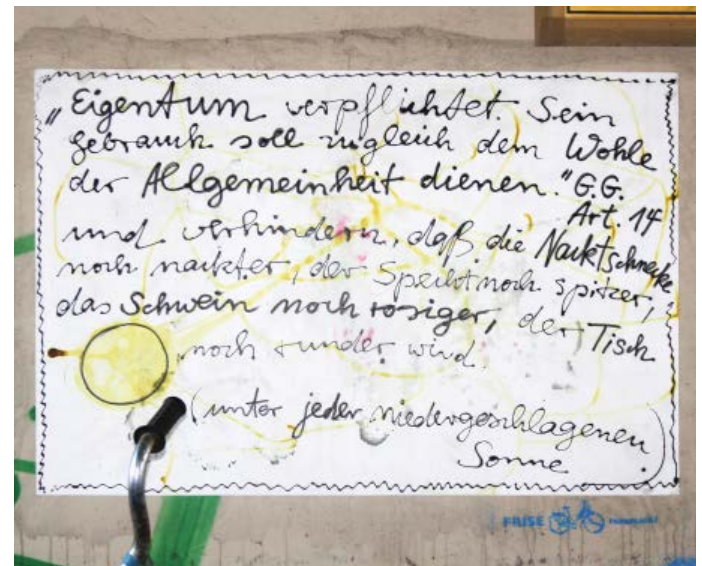 „Eigentum verpflichtet. Sein
Gebrauch soll zugleich dem Wohle
der Allgemeinheit dienen." G.G.
Art. 14
und verhindern, daß die Nacktschnecke
noch nackter, der Specht noch spitzer,
das Schwein noch rosiger, der Tisch
noch runder wird.
(unter jeder niedergeschlagenen
Sonne.)
FRISE